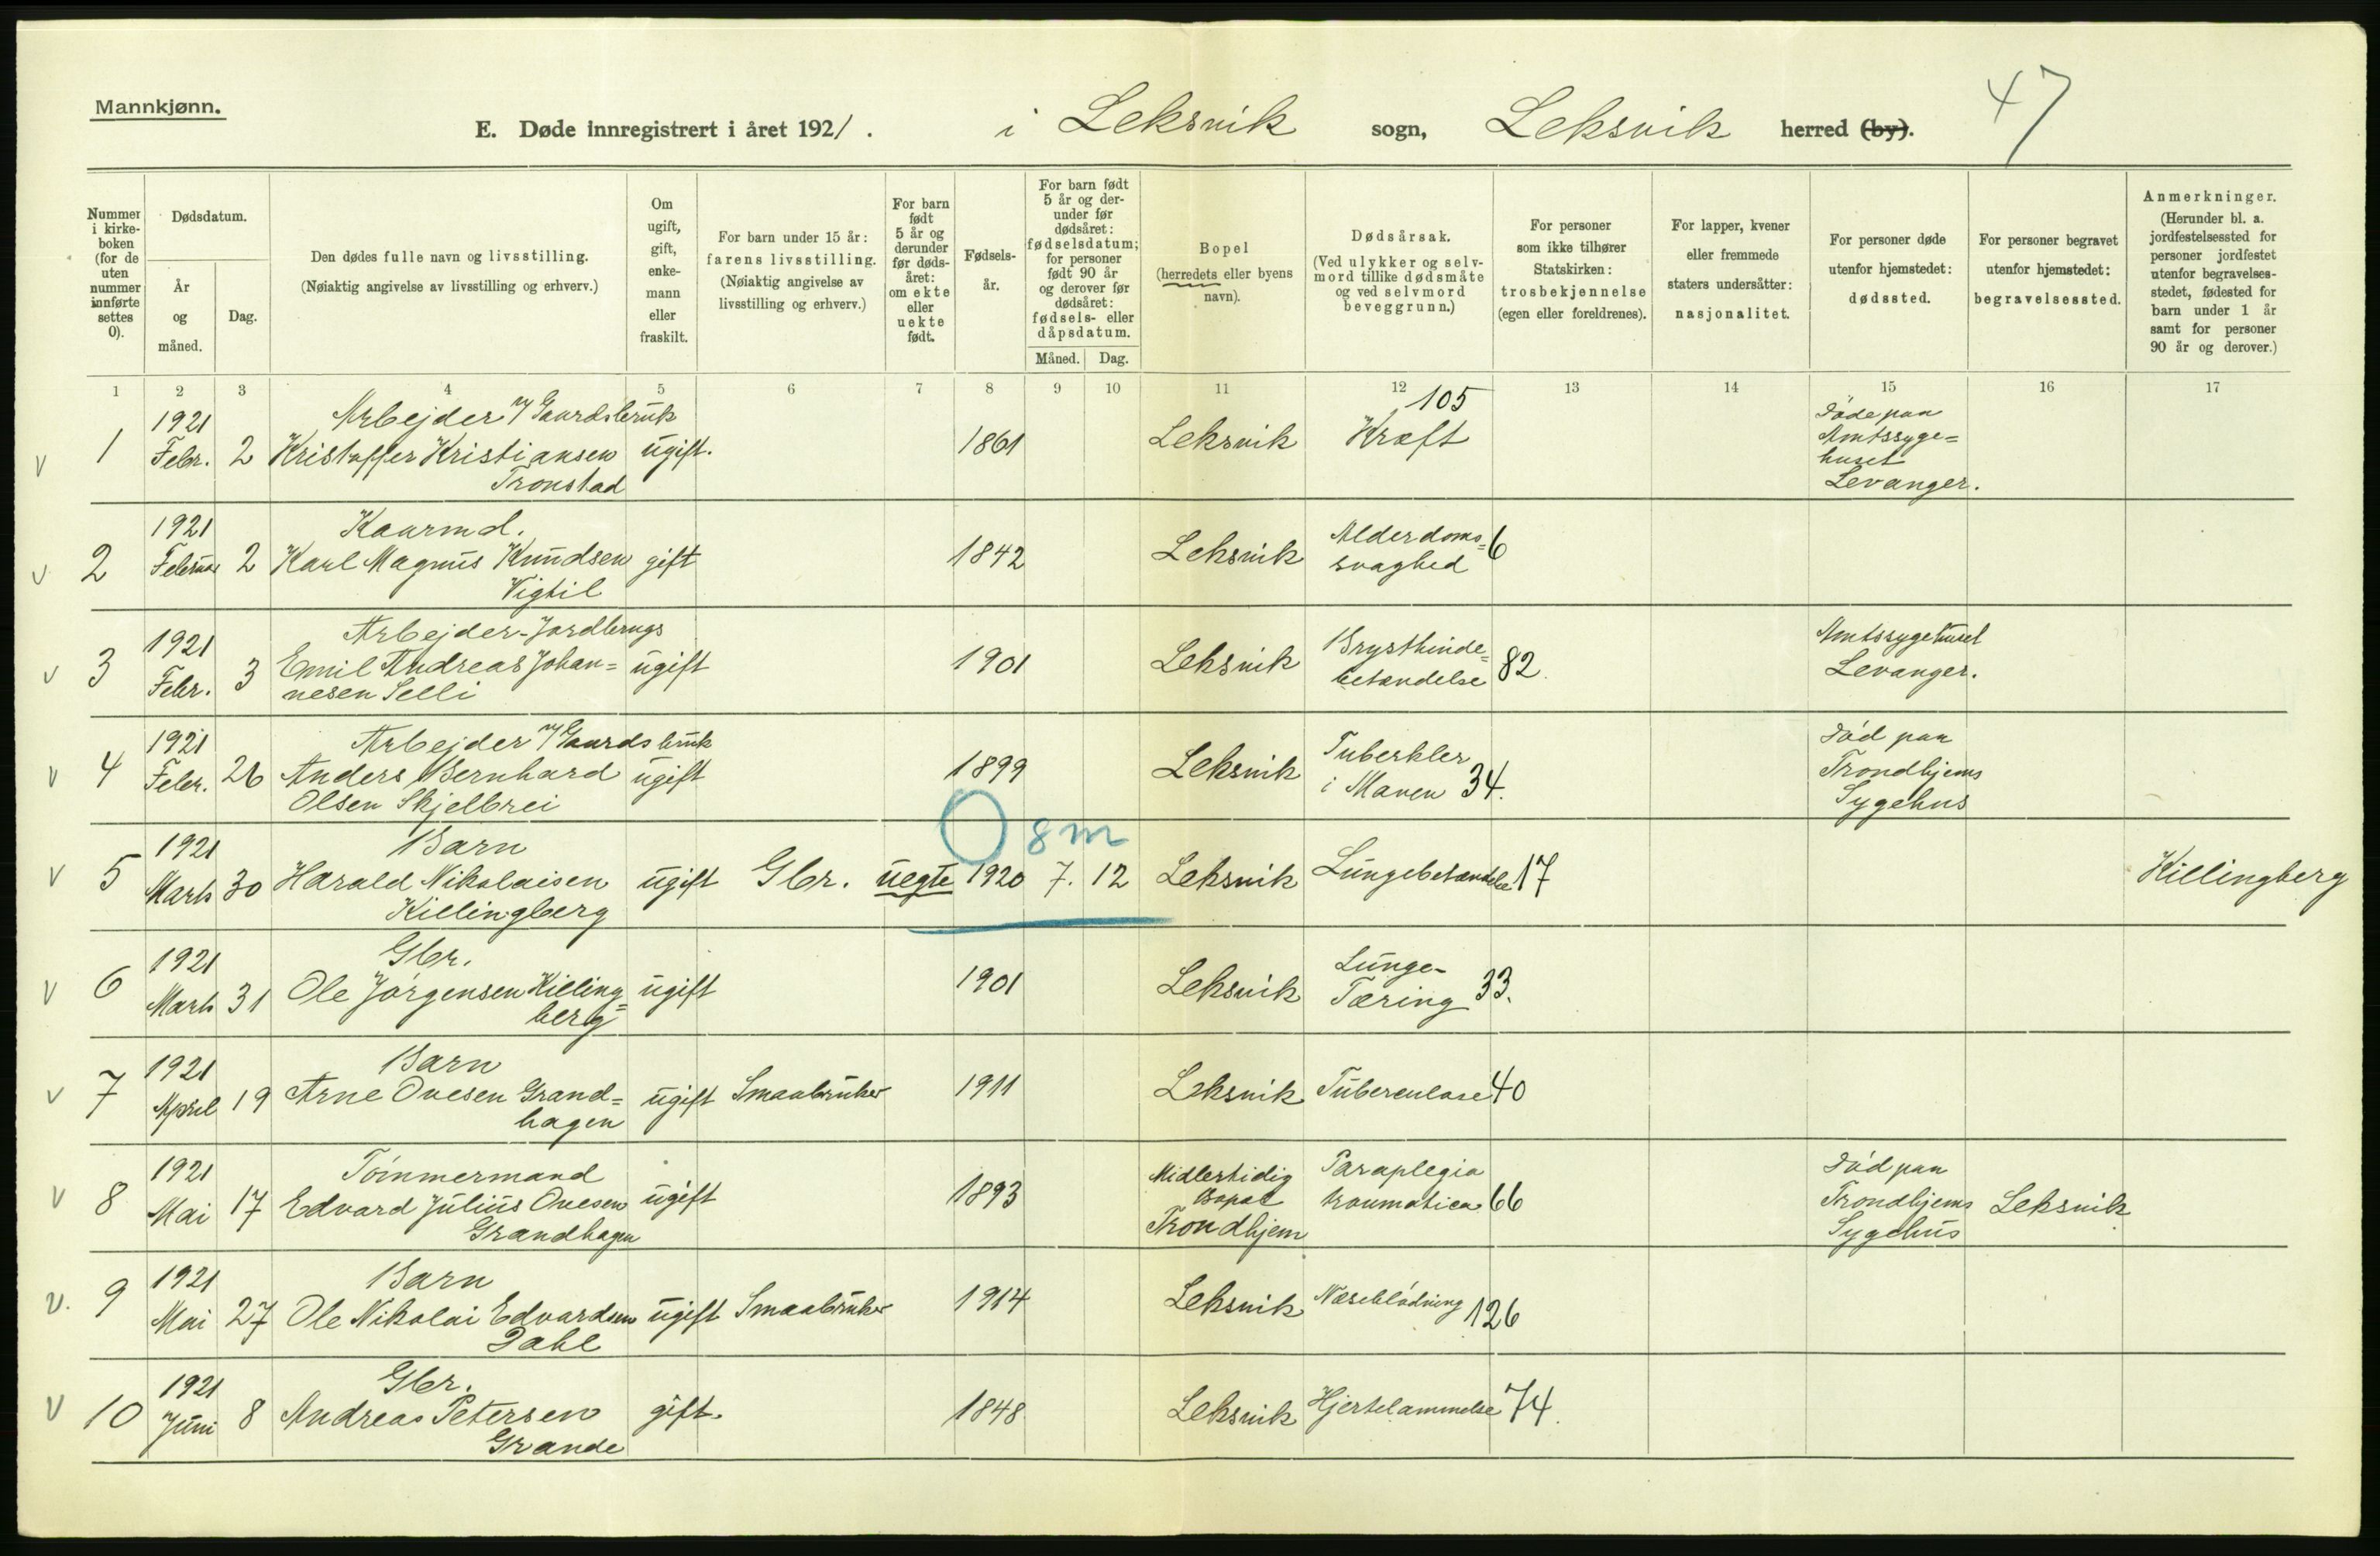 Mannkjønn.
E. Døde innregistrert i året 1921. i Leksvik sogn, Leksvik herred (by).
47
Nummer i kirkeboken (for de uten nummer innførte settes 0).
Dødsdatum.
År og måned.
Dag.
Den dødes fulle navn og livsstilling.
(Nøiaktig angivelse av livsstilling og erhverv.)
Om ugift, gift, enkemann eller fraskilt.
For barn under 15 år: farens livsstilling.
(Nøiaktig angivelse av livsstilling og erhverv.)
For barn født 5 år og derunder før dødsåret: om ekte eller uekte født.
Fødselsår.
For barn født 5 år og derunder før dødsåret: fødselsdatum; for personer født 90 år og derover før dødsåret: fødsels- eller dåpsdatum.
Måned. Dag.
Bopel
(herredets eller byens navn).
Dødsårsak.
(Ved ulykker og selvmord tillike dødsmåte og ved selvmord beveggrunn.)
For personer som ikke tilhører Statskirken: trosbekjennelse (egen eller foreldrenes).
For lapper, kvener eller fremmede staters undersåtter: nasjonalitet.
For personer døde utenfor hjemstedet: dødssted.
For personer begravet utenfor hjemstedet: begravelsessted.
Anmerkninger.
(Herunder bl. a. jordfestelsessted for personer jordfestet utenfor begravelsesstedet, fødested for barn under 1 år samt for personer 90 år og derover.)
1 2 3 4 5 6 7 8 9 10 11 12 13 14 15 16 17
v 1 1921 Febr. 2 Arbejder v/ Gaardsbruk Kristoffer Kristiansen Tronstad ugift. 1861 Leksvik Kræft 105 Døde paa Amtssyge=huset Levanger.
v 2 1921 Februar 2 Kaarmd. Karl Magnus Knudsen Vigtil gift 1842 Leksvik Alderdoms=svaghed 6
v 3 1921 Febr. 3 Arbejder-Jordbrugs Emil Andreas Johan=nesen Selli ugift 1901 Leksvik Brysthinde=betændelse 82. Amtssygehuset Levanger.
v 4 1921 Febr. 26 Arbejder v/ Gaardsbruk Anders Bernhard Olsen Skjelbrei ugift 1899 Leksvik Tuberkler i Maven 34. Död paa Trondhjems Sygehus
v 5 1921 Marts 30 Barn Harald Nikolaisen Killingberg ugift Gbr. uegte 1920 7. 12 Leksvik Lungebetændelse 17 Killingberg
8 m
v 6 1921 Marts 31 Gbr. Ole Jörgensen Killing=berg ugift 1901 Leksvik Lunge-Tæring 33.
v 7 1921 April 19 Barn Arne Ovesen Grand=hagen ugift Smaabruker 1911 Leksvik Tuberculose 40
v 8 1921 Mai 17 Tömmermand Edvard Julius Ovesen Grandhagen ugift 1893 Midlertidig Bopæl Trondhjem Paraplegia traumatica 66 Död paa Trondhjems Sygehus Leksvik
v. 9 1921 Mai 27 Barn Ole Nikolai Edvardsen Dahl ugift Smaabruker 1914 Leksvik Næseblödning 126
v 10 1921 Juni 8 Gbr. Andreas Petersen Grande gift. 1848 Leksvik Hjertelammelse 74.